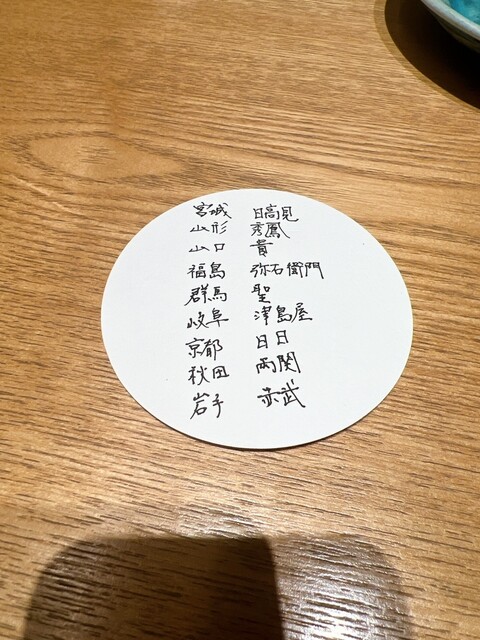 宮城 日高見
山形 秀鳳
山口 貴
福島 弥右衛門
群馬 聖
岐阜 津島屋
京都 日日
秋田 両関
岩手 赤武